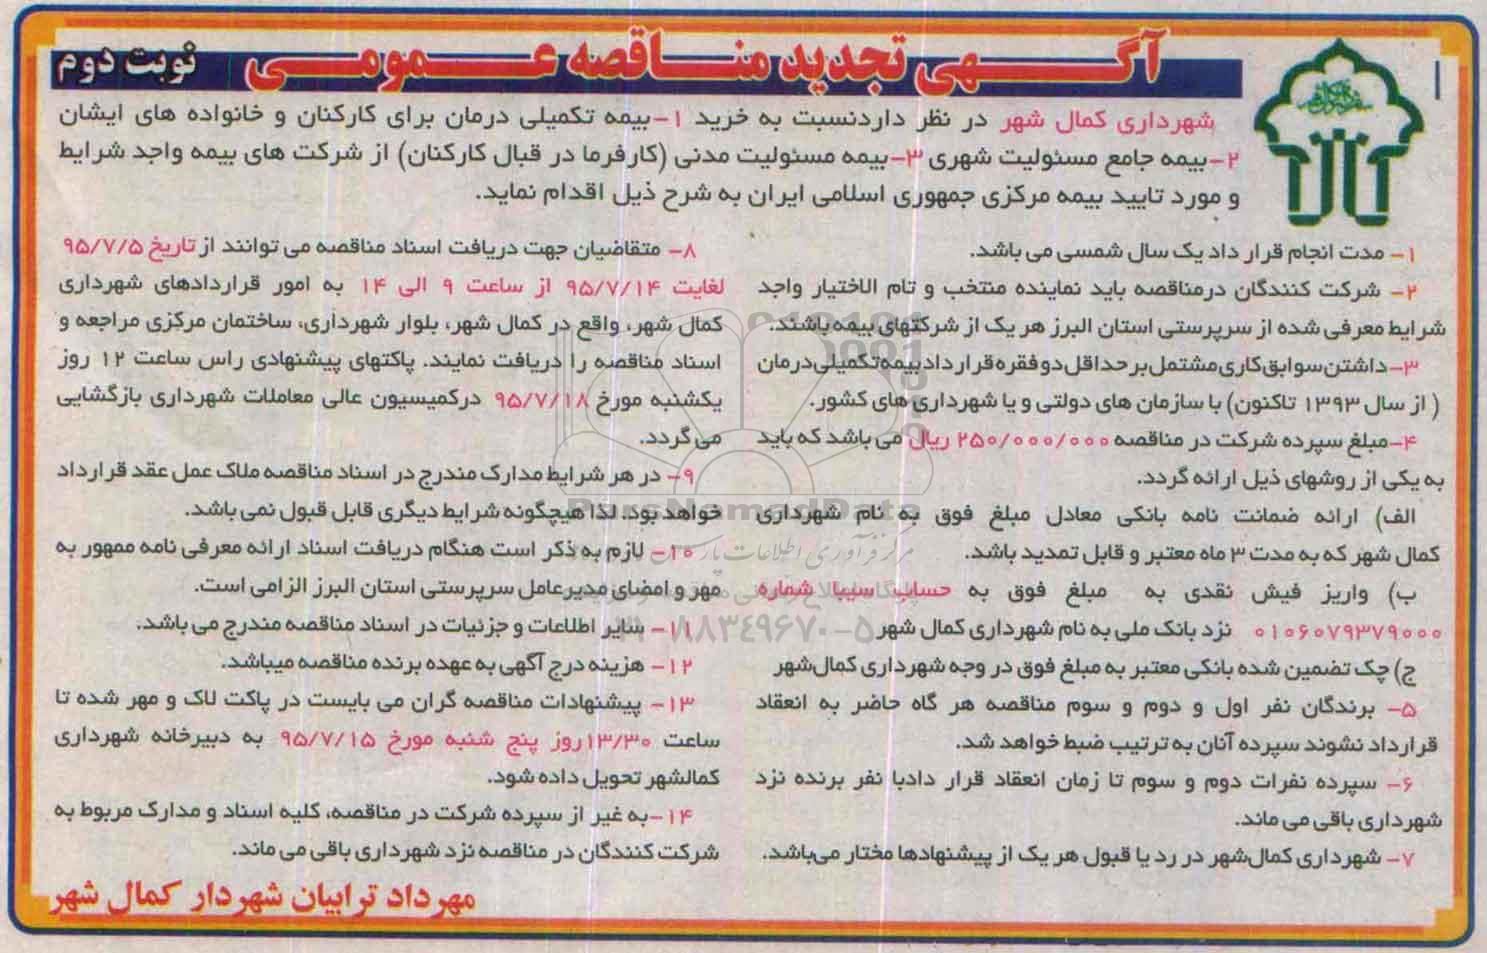 آگهی تجدید مناقصه عمومی
نوبت دوم
شهرداری کمال شهر در نظر داردنسبت به خرید ۱-بیمه تکمیلی درمان برای کارکنان و خانواده های ایشان
۲-بیمه جامع مسئولیت شهری ۳-بیمه مسئولیت مدنی (کارفرما در قبال کارکنان) از شرکت های بیمه واجد شرایط
و مورد تایید بیمه مرکزی جمهوری اسلامی ایران به شرح ذیل اقدام نماید.
۱- مدت انجام قرار داد یک سال شمسی می باشد.
۲- شرکت کنندگان درمناقصه باید نماینده منتخب و تام الاختیار واجد
شرایط معرفی شده از سرپرستی استان البرز هر یک از شرکتهای بیمه باشند.
۳-داشتن سوابق کاری مشتمل بر حداقل دو فقره قرار داد بیمه تکمیلی درمان
( از سال ۱۳۹۳ تاکنون) با سازمان های دولتی و یا شهرداری های کشور.
۴-مبلغ سپرده شرکت در مناقصه ۲۵۰/۰۰۰/۰۰۰ ریال می باشد که باید
به یکی از روشهای ذیل ارائه گردد.
الف) ارائه ضمانت نامه بانکی معادل مبلغ فوق به نام شهرداری
کمال شهر که به مدت ۳ ماه معتبر و قابل تمدید باشد.
ب) واریز فیش نقدی به مبلغ فوق به حساب سیبا شماره
۰۱۰۶۰۷۹۳۷۹۰۰۰ نزد بانک ملی به نام شهرداری کمال شهر
ج) چک تضمین شده بانکی معتبر به مبلغ فوق در وجه شهرداری کمال‌شهر
۵- برندگان نفر اول و دوم و سوم مناقصه هر گاه حاضر به انعقاد
قرارداد نشوند سپرده آنان به ترتیب ضبط خواهد شد.
۶- سپرده نفرات دوم و سوم تا زمان انعقاد قرار دادبا نفر برنده نزد
شهرداری باقی می ماند.
۷- شهرداری کمال‌شهر در رد یا قبول هر یک از پیشنهادها مختار می‌باشد.
۸- متقاضیان جهت دریافت اسناد مناقصه می توانند از تاریخ ۹۵/۷/۵
لغایت ۹۵/۷/۱۴ از ساعت ۹ الی ۱۴ به امور قراردادهای شهرداری
کمال شهر، واقع در کمال شهر، بلوار شهرداری، ساختمان مرکزی مراجعه و
اسناد مناقصه را دریافت نمایند. پاکتهای پیشنهادی راس ساعت ۱۲ روز
یکشنبه مورخ ۹۵/۷/۱۸ درکمیسیون عالی معاملات شهرداری بازگشایی
می گردد.
۹- در هر شرایط مدارک مندرج در اسناد مناقصه ملاک عمل عقد قرارداد
خواهد بود. لذا هیچگونه شرایط دیگری قابل قبول نمی باشد.
۱۰- لازم به ذکر است هنگام دریافت اسناد ارائه معرفی نامه ممهور به
مهر و امضای مدیرعامل سرپرستی استان البرز الزامی است.
۱۱- سایر اطلاعات و جزئیات در اسناد مناقصه مندرج می باشد.
۱۲- هزینه درج آگهی به عهده برنده مناقصه میباشد.
۱۳- پیشنهادات مناقصه گران می بایست در پاکت لاک و مهر شده تا
ساعت ۱۳/۳۰روز پنج شنبه مورخ ۹۵/۷/۱۵ به دبیرخانه شهرداری
کمالشهر تحویل داده شود.
۱۴-به غیر از سپرده شرکت در مناقصه، کلیه اسناد و مدارک مربوط به
شرکت کنندگان در مناقصه نزد شهرداری باقی می ماند.
مهرداد ترابیان شهردار کمال شهر
ParsNamadData
مرکز فرآوری اطلاعات پارس
۸۸۳۴۹۶۷۰-۵